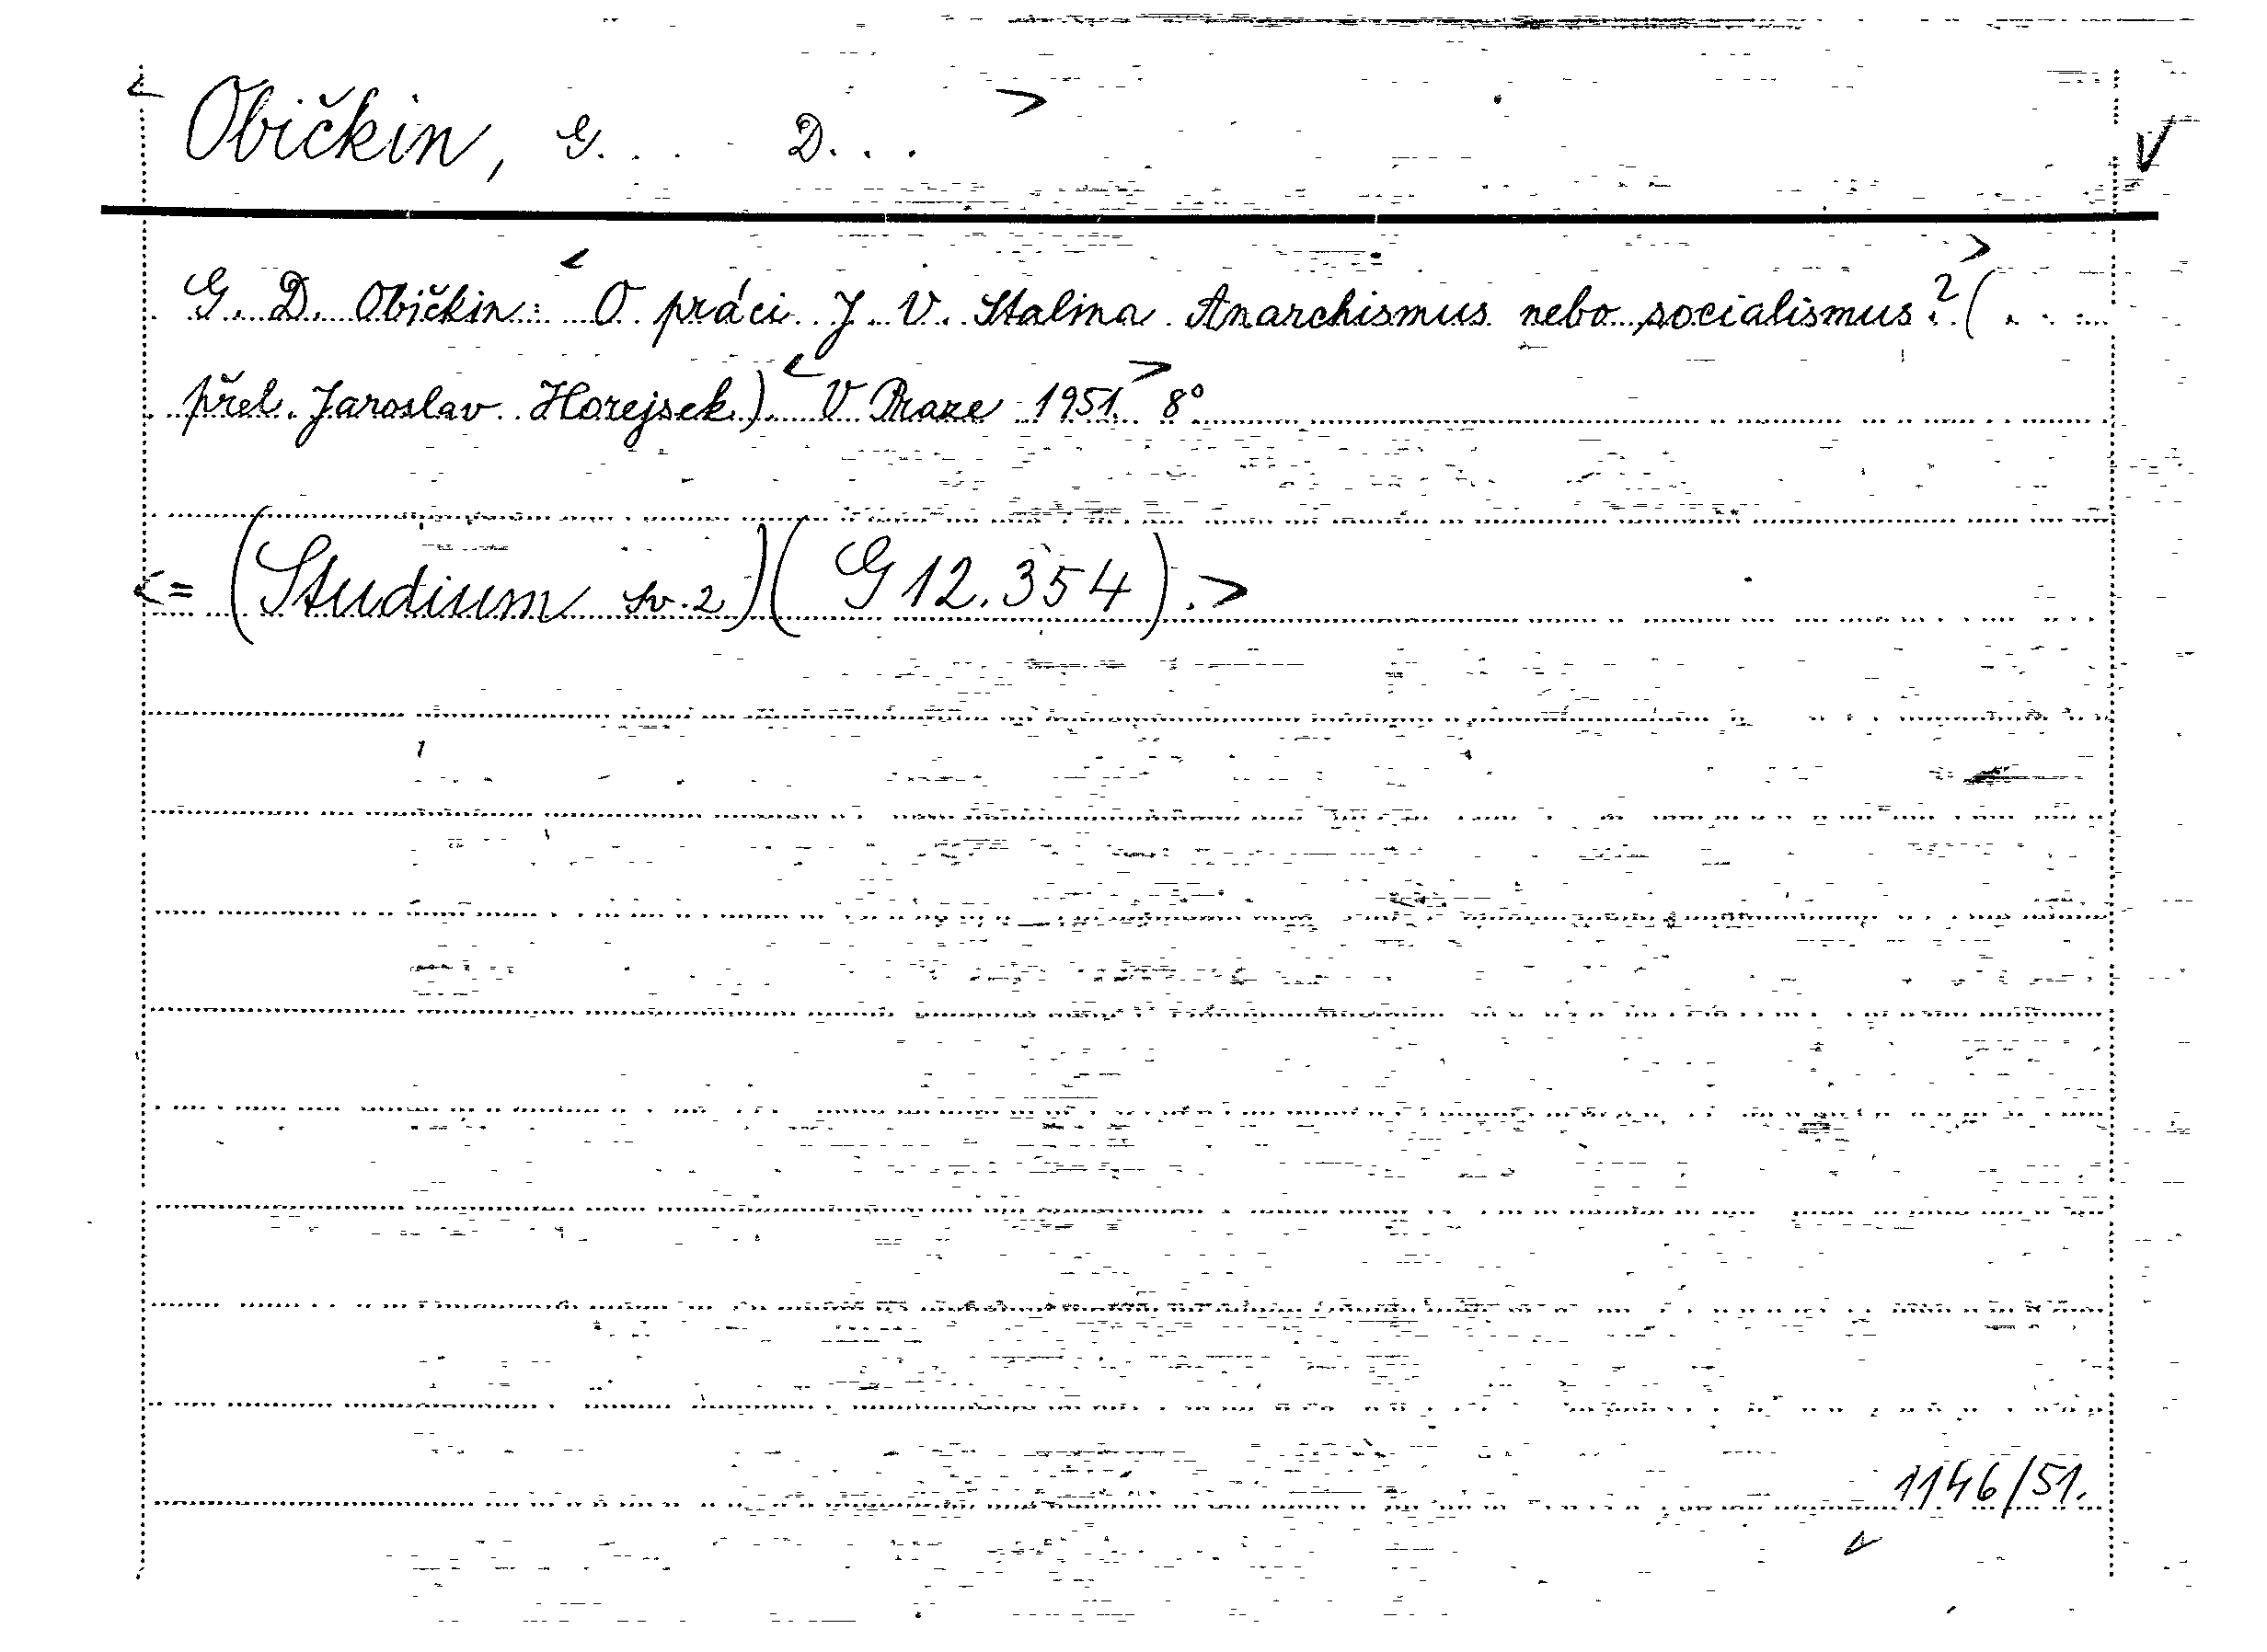 < Običkin, G. . . D. . . >
G. D. Običkin: < O práci J. V. Stalina Anarchismus nebo socialismus? > ( . . .
přel. Jaroslav Horejsek.) < V Praze 1951. > 8°
<= (Studium sv. 2) ( G 12.354). >
1146/51.